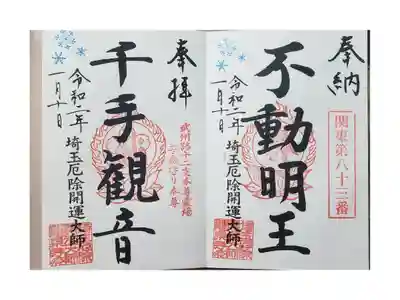 奉納
関東第八十三番
不動明王
埼玉厄除開運大師
令和二年
一月十日
奉拝
武州路十二支本尊霊場
子歳守り本尊
千手観音
埼玉厄除開運大師
令和二年
一月十日